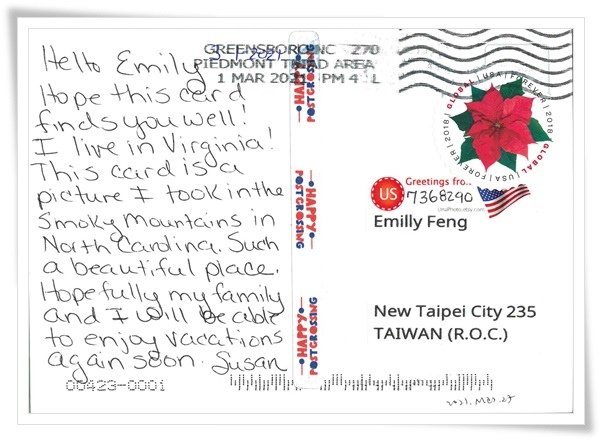 Hello Emily,
Hope this card
finds you well!
I live in Virginia!
This card is a
picture I took in the
Smoky Mountains in
North Carolina. Such
a beautiful place.
Hopefully my family
and I will be able
to enjoy vacations
again soon. Susan
00423-0001
GREENSBORO NC 270
PIEDMONT TRIAD AREA
1 MAR 2021 PM 4 L
HAPPY
POSTCROSSING
HAPPY
POSTCROSSING
HAPPY
POSTCROSSING
GLOBAL | USA | FOREVER | 2018
GLOBAL | USA | FOREVER | 2018
Greetings fro..
US 7368290
Emilly Feng
New Taipei City 235
TAIWAN (R.O.C.)